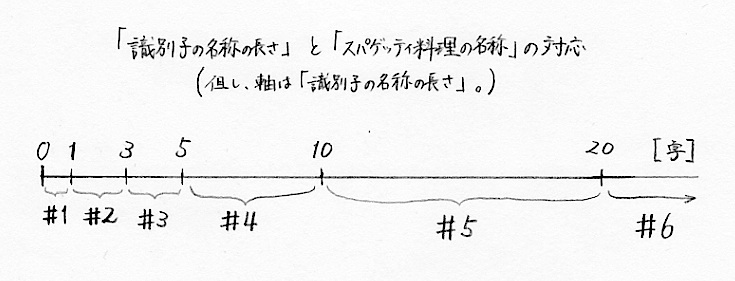 「識別子の名称の長さ」と「スパゲッティ料理の名称」の対応
(但し、軸は「識別子の名称の長さ」。)
0 1 3 5 10 20 [字]
#1 #2 #3 #4 #5 #6